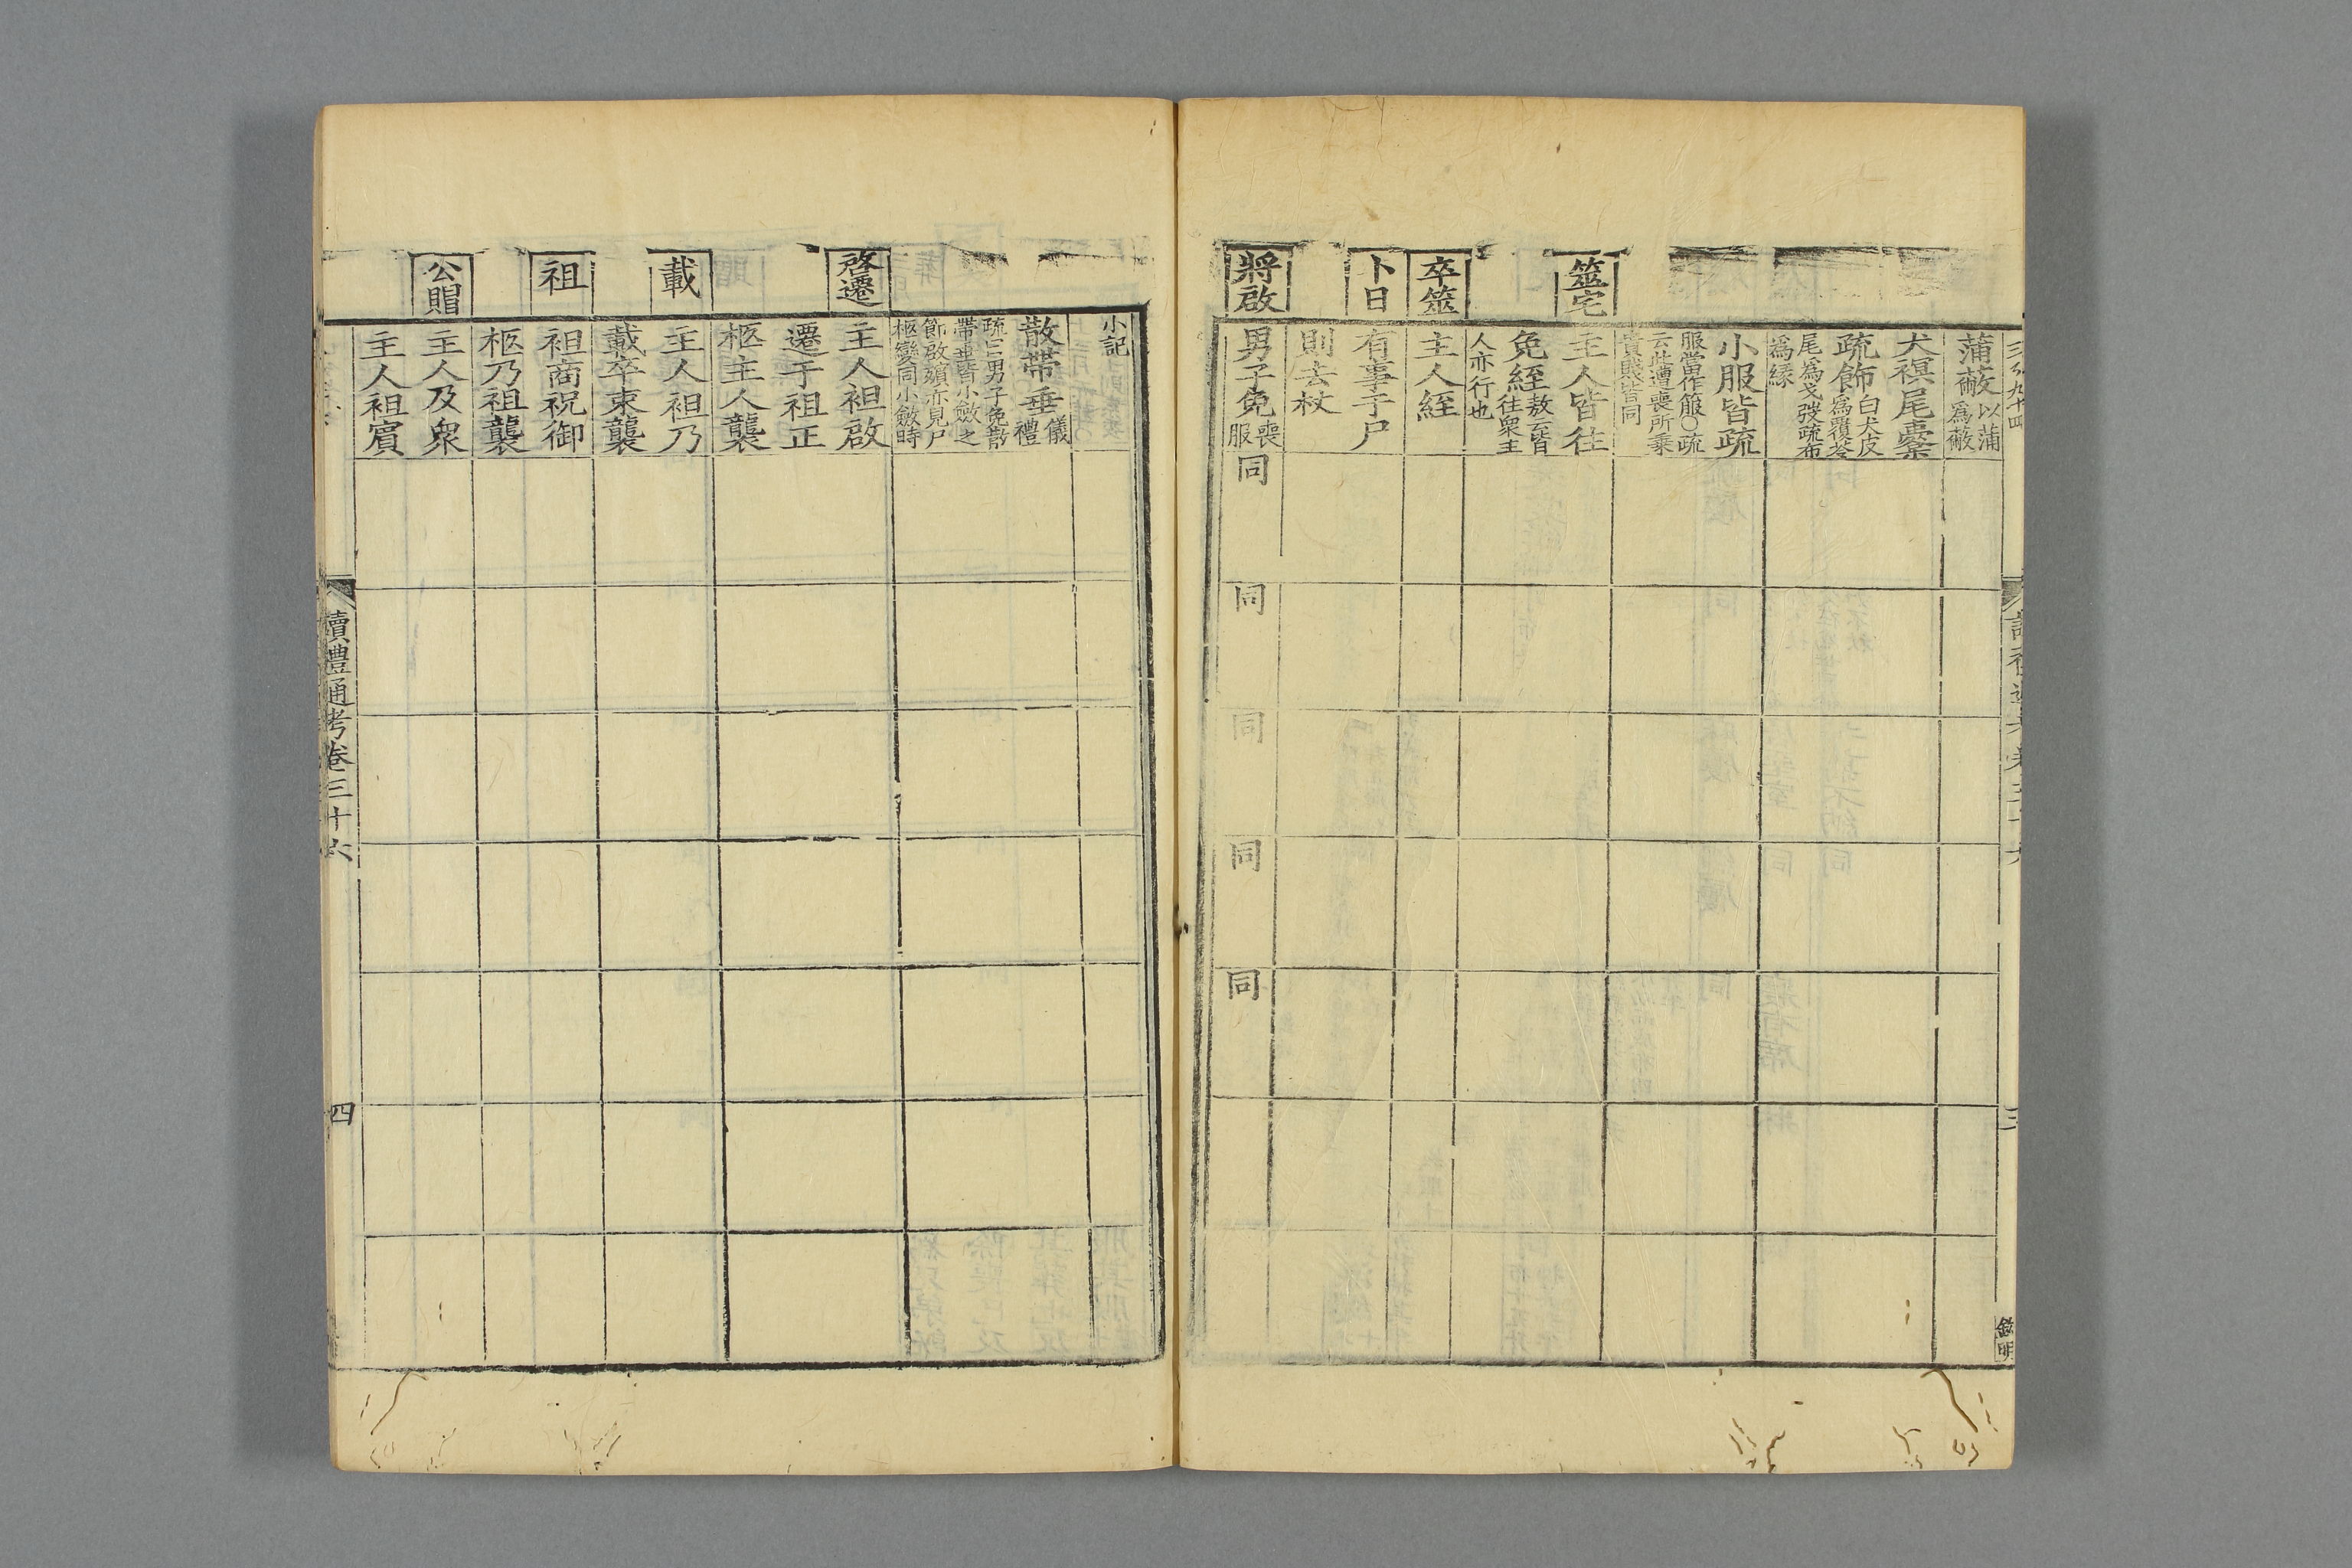 蒲蔽以蒲
爲蔽
犬䙪尾櫜
疏飾白犬皮
爲覆笭
尾爲戈弢疏布
爲緣
小服皆疏
服當作箙○疏
云此遭喪所乗
貴賤皆同
筮宅
主人皆往
免絰敖云皆
往衆主
人亦行也
卒筮
主人絰
卜日
有事于尸
則去杖
將啟
男子免喪
服
同
同
同
同
同
三
小記
散帶垂儀
禮
疏云男子免散
帶垂皆小斂之
節啟殯亦見尸
柩變同小斂時
啓遷
主人袒啟
遷于祖正
柩主人襲
載
主人袒乃
載卒束襲
祖
袒商祝御
柩乃祖襲
公賵
主人及衆
主人袒賓
讀禮通考卷三十六
四